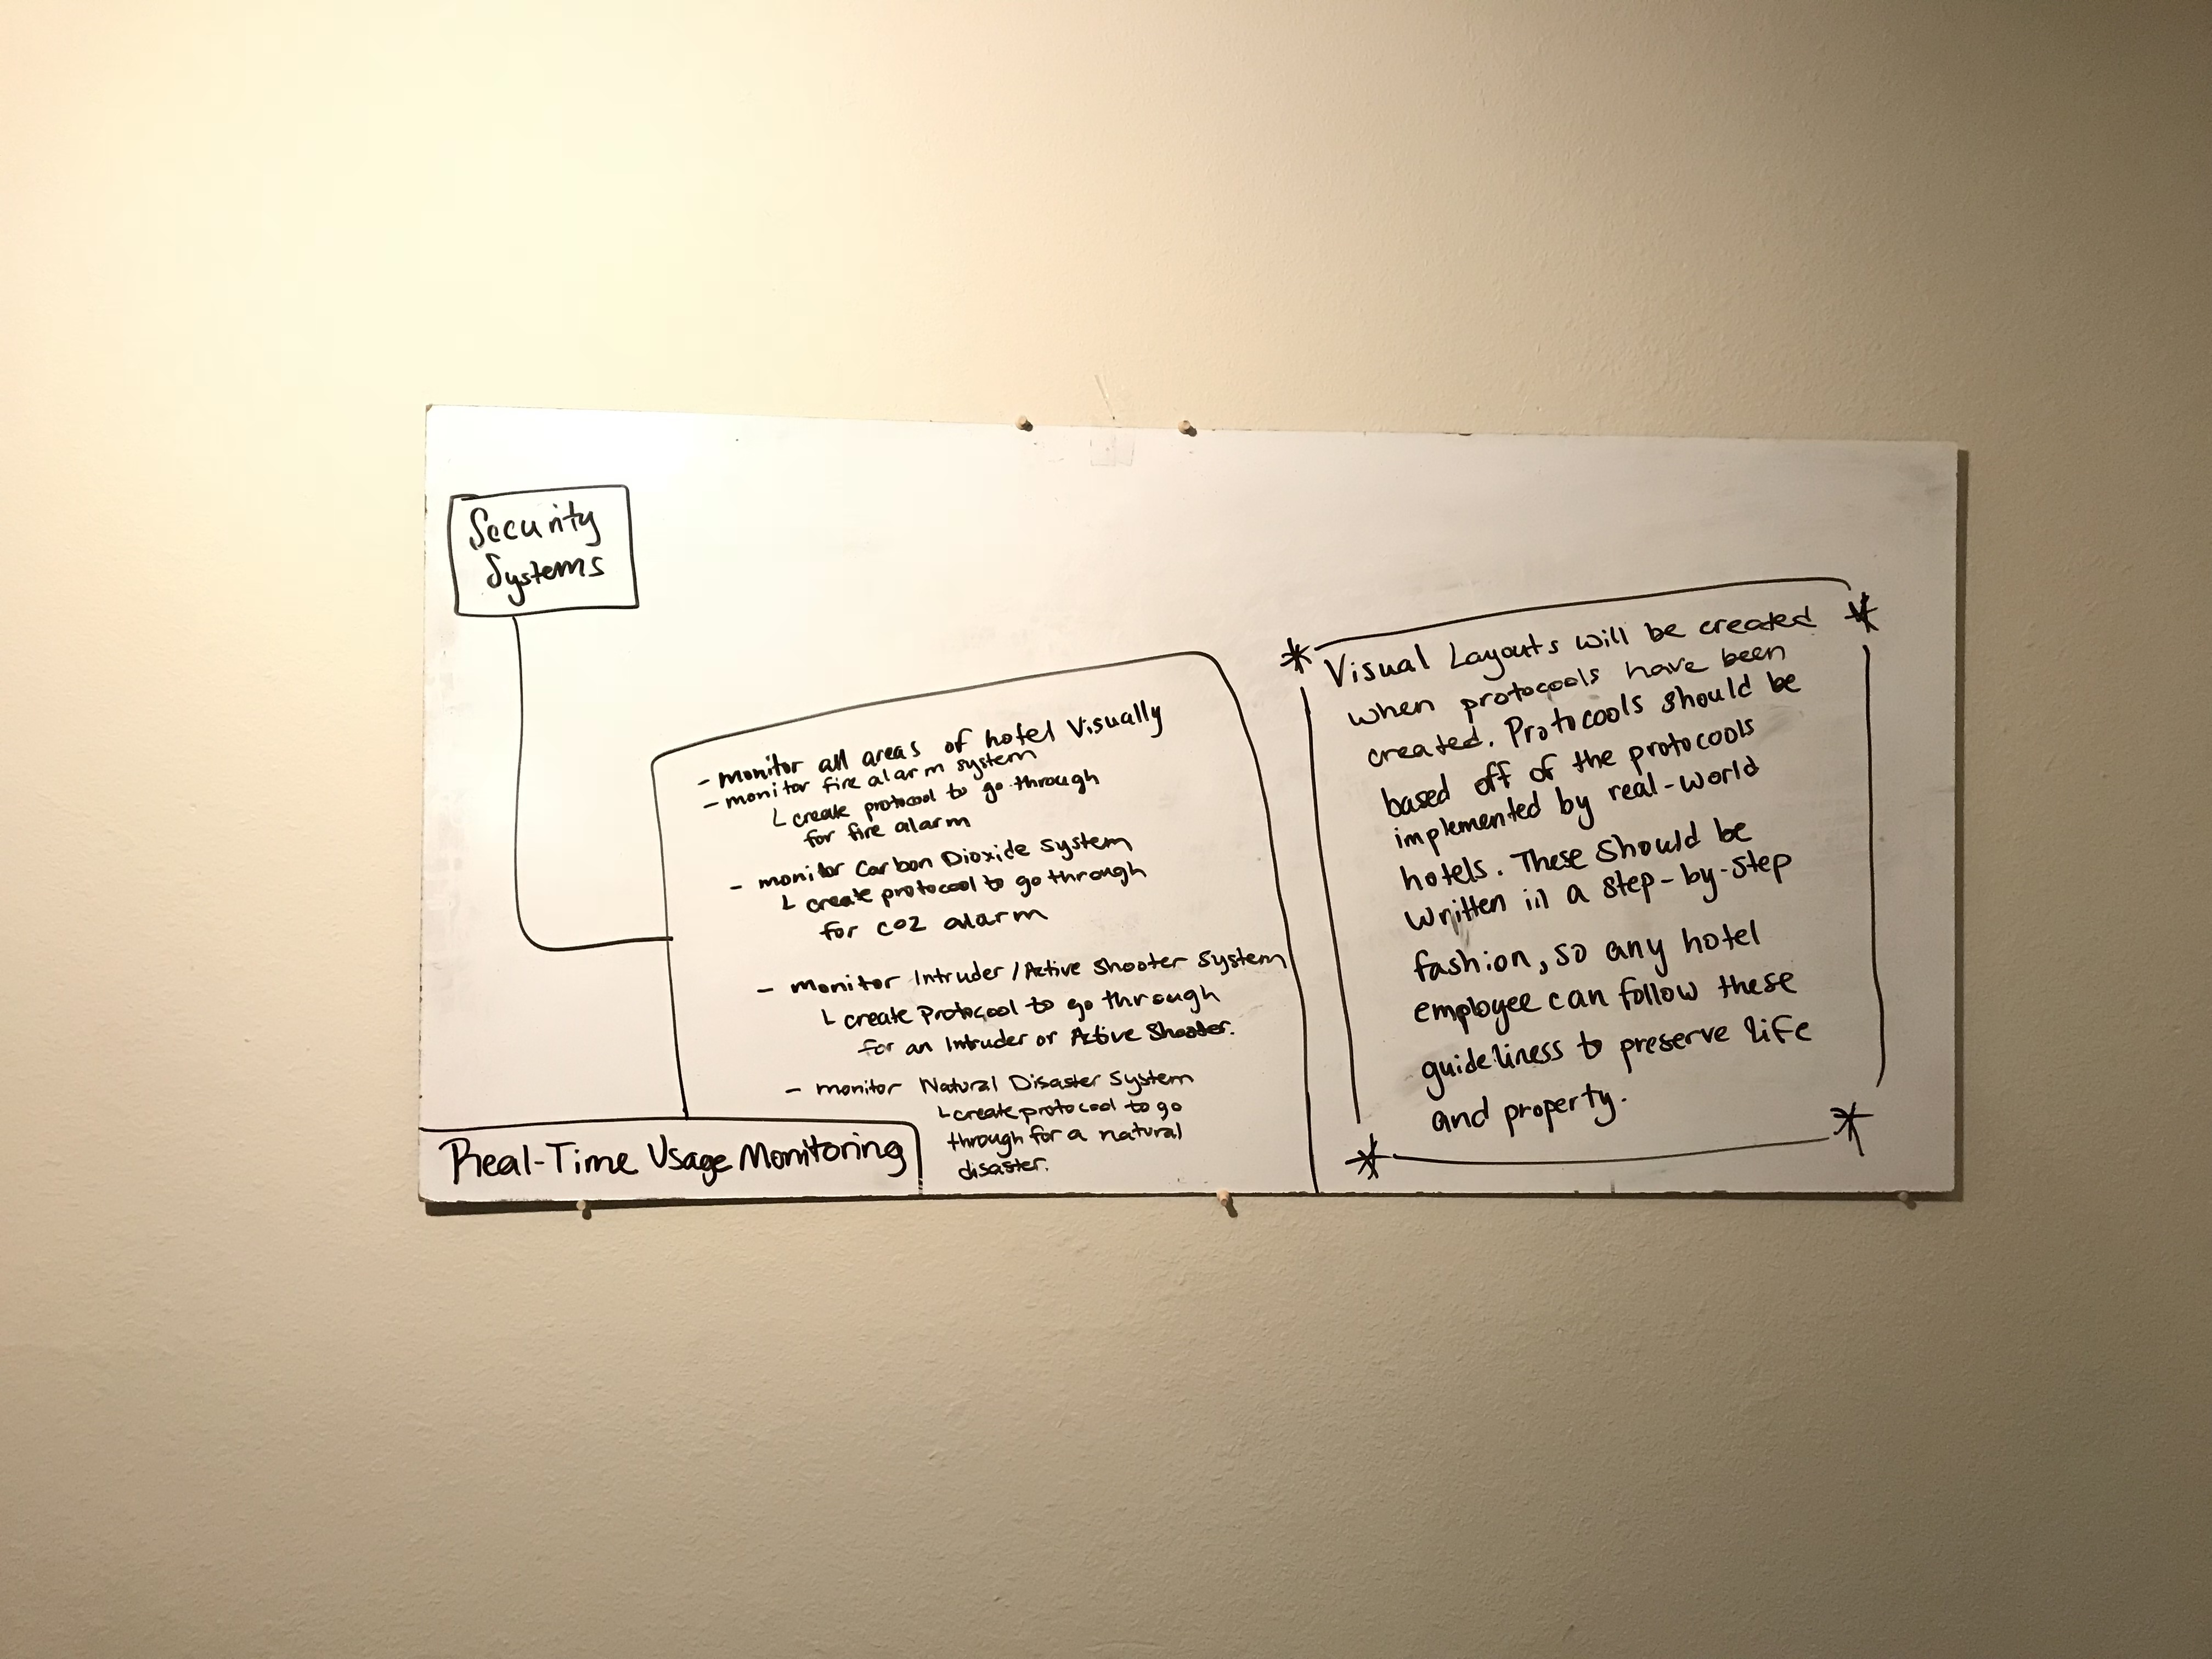 Security
Systems
- monitor all areas of hotel Visually
- monitor fire alarm system
└ create protocool to go through
for fire alarm
- monitor Carbon Dioxide System
└ create protocool to go through
for CO2 alarm
- monitor Intruder / Active Shooter System
└ create Protocool to go through
for an Intruder or Active Shooter.
- monitor Natural Disaster System
└ create protocool to go
through for a natural
disaster.
Real-Time Usage Monitoring
* Visual Layouts will be created *
when protocools have been
created. Protocools should be
based off of the protocools
implemented by real-world
hotels. These should be
written in a step-by-step
fashion, so any hotel
employee can follow these
guideliness to preserve life
and property.
* *